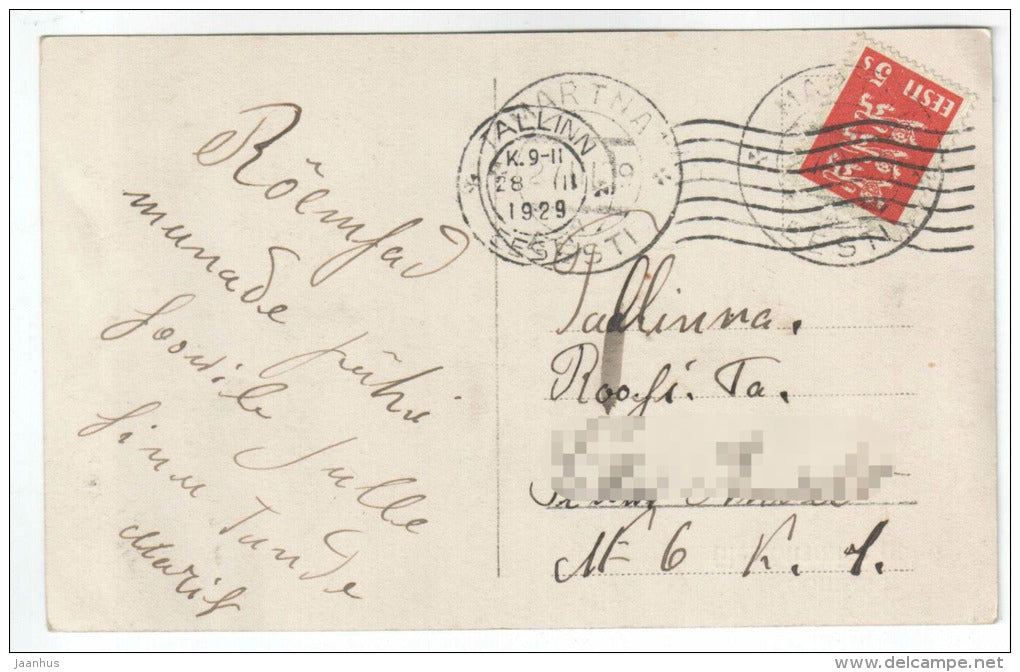 Rõemsad
munade pühi
soovib sulle
sinu Tunde
Marif
MARTNA
TALLINN
K. 9-11
28 III
1929
EESTI
EESTI
5 S
EESTI
Tallinna.
Roosi. Ta.
№ 6 K. 1.
Jaanhus
www.delcampe.net